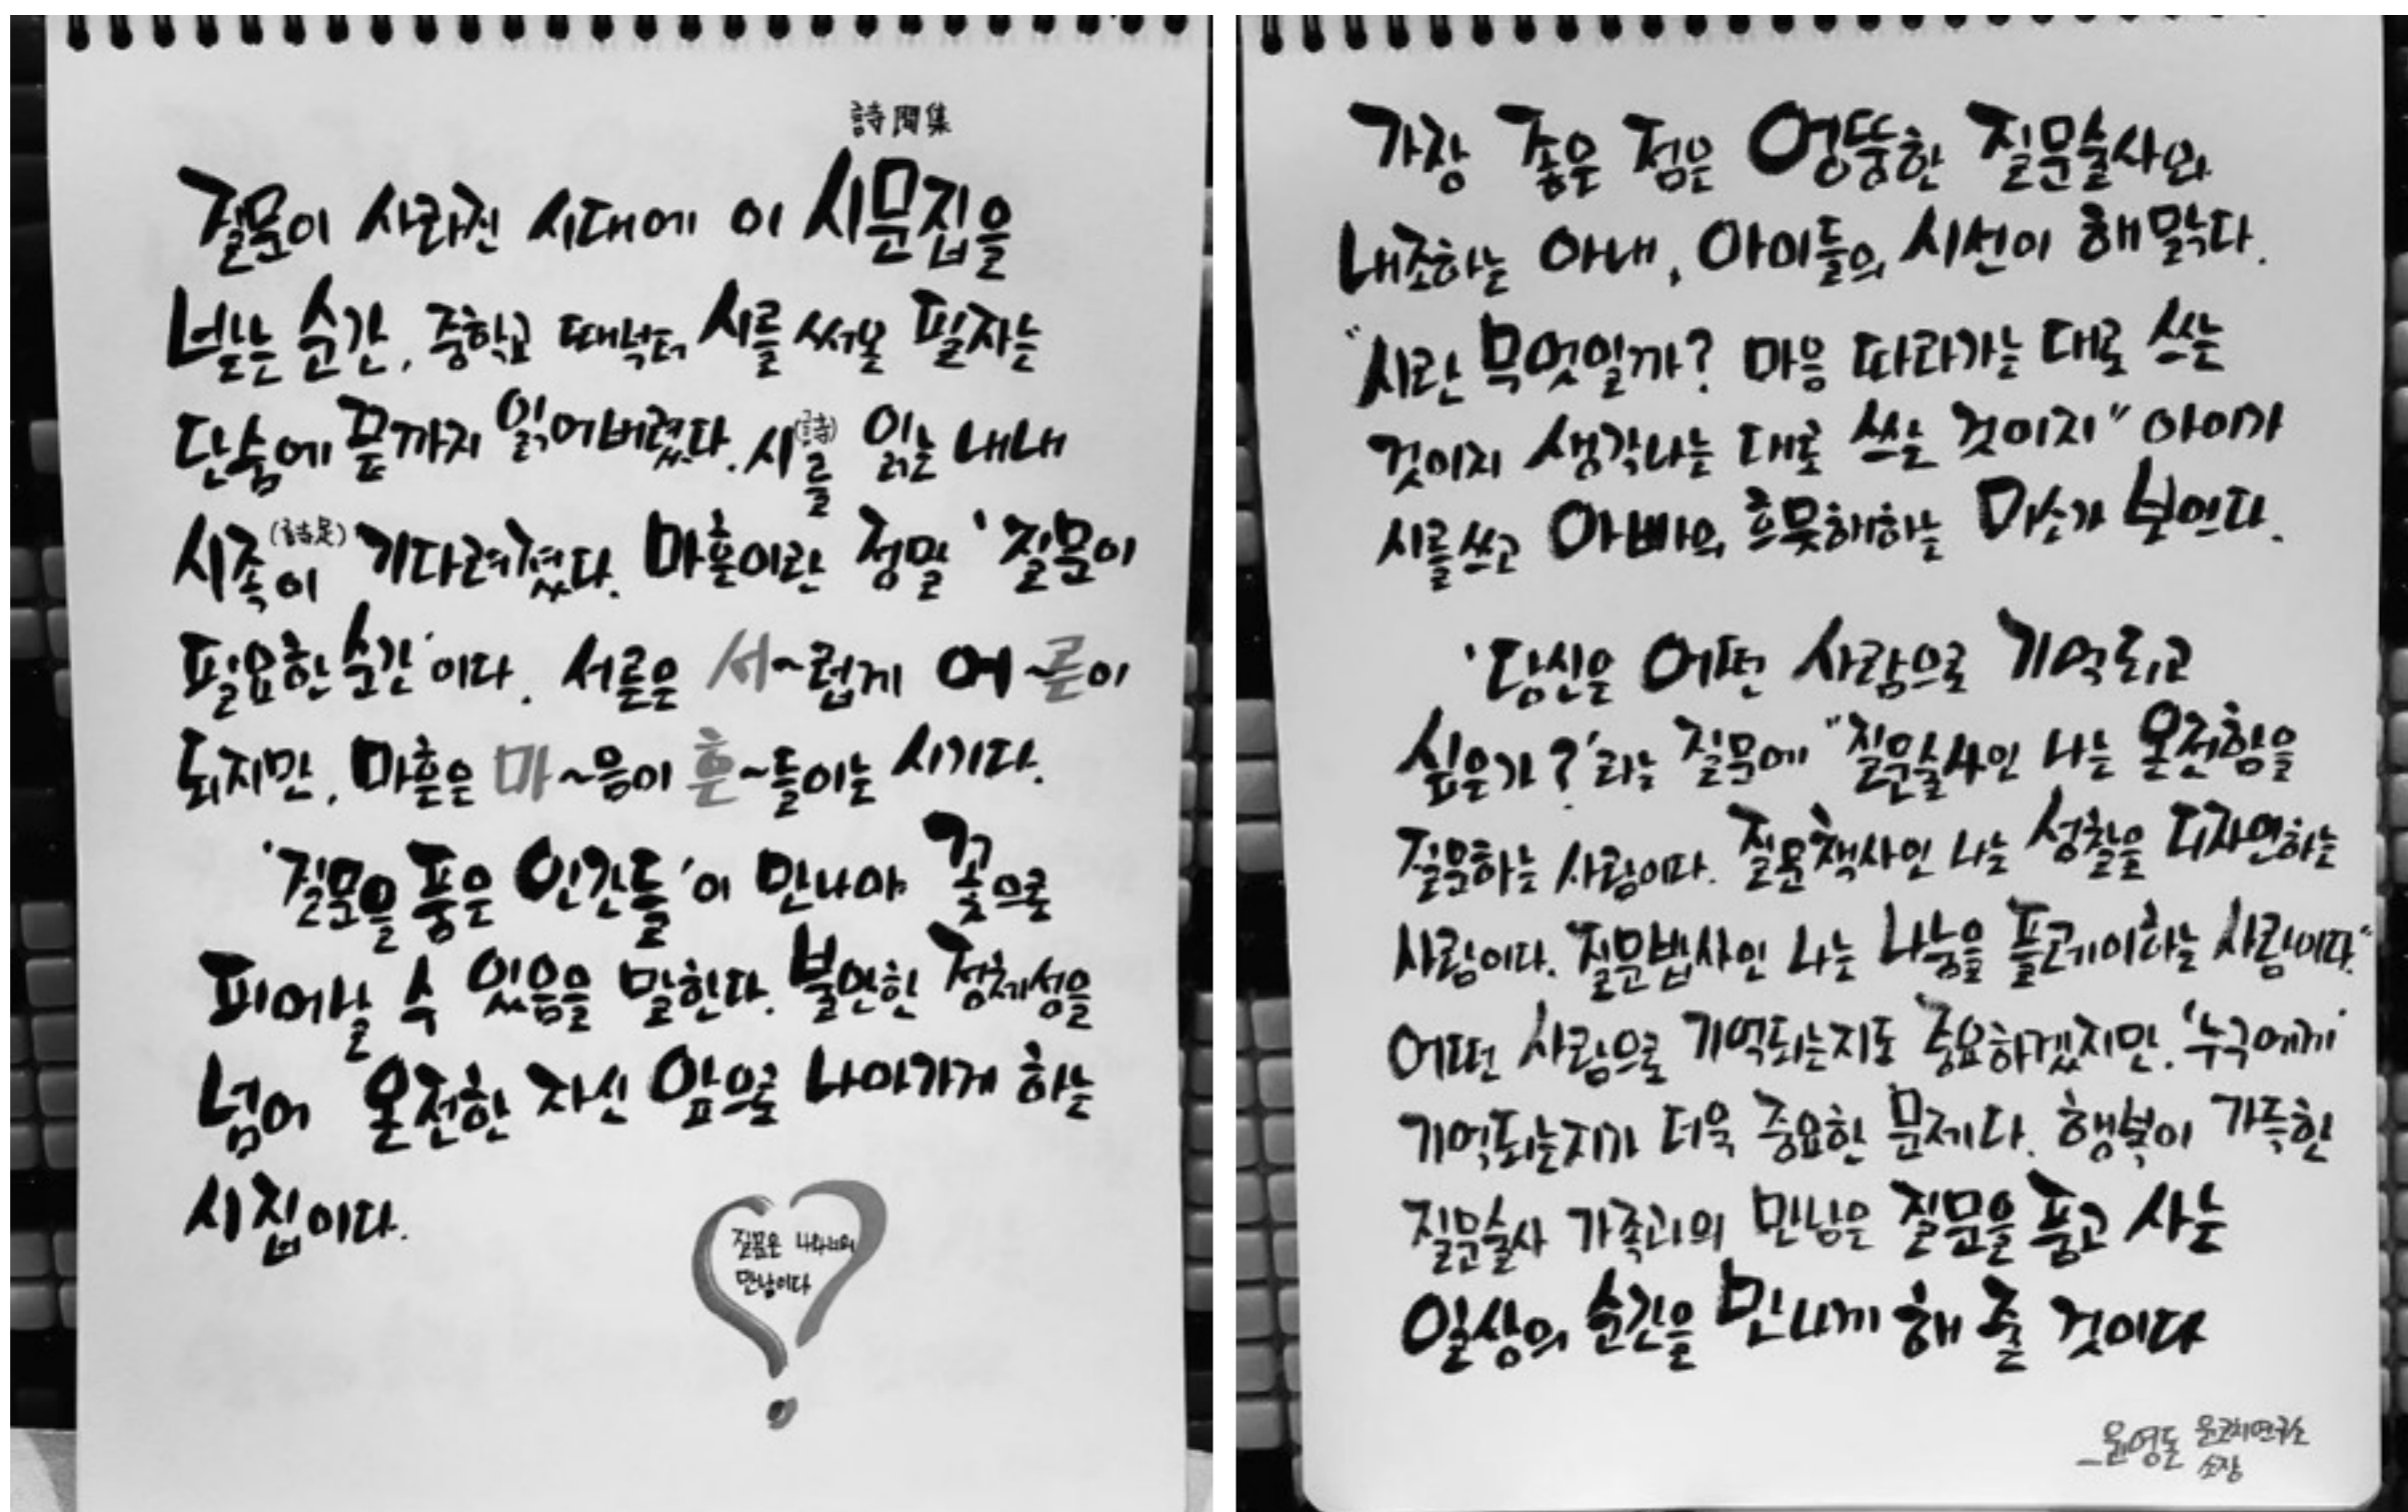 詩問集
질문이 사라진 시대에 이 시문집을
넘는 순간, 중학교 때부터 시를 써온 필자는
단숨에 끝까지 읽어버렸다. 시(詩)를 읽는 내내
시족(詩足)이 기다려졌다. 마흔이란 정말 '질문이
필요한 순간'이다. 서른은 서~럽게 어~른이
되지만, 마흔은 마~음이 흔~들이는 시기다.
'질문을 품은 인간들'이 만나야 꽃으로
피어날 수 있음을 말한다. 불안한 정체성을
넘어 온전한 자신 앞으로 나아가게 하는
시집이다.
질문은 나와너의
만남이다
가장 좋은 점은 엉뚱한 질문술사와
내조하는 아내, 아이들의 시선이 해맑다.
"시란 무엇일까? 마음 따라가는 대로 쓰는
것이지 생각나는 대로 쓰는 것이지" 아이가
시를 쓰고 아빠의 흐뭇해하는 미소가 보인다.
'당신은 어떤 사람으로 기억되고
싶은가?'라는 질문에 "질문술사인 나는 온전함을
질문하는 사람이다. 질문책사인 나는 성찰을 디자인하는
사람이다. 질문법사인 나는 나눔을 품고기이하는 사람이다."
어떤 사람으로 기억되는지도 중요하겠지만, '누구에게'
기억되는지가 더욱 중요한 문제다. 행복이 가득한
질문술사 가족과의 만남은 질문을 품고 사는
일상의 순간을 만나게 해 줄 것이다
_윤영돈 윤코치연구소
소장